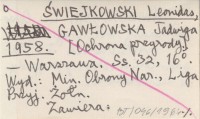 ŚWIEJKOWSKI Leonidas,
GAWŁOWSKA Jadwiga
1958. [Ochrona przyrody].
— Warszawa. Ss. 32, 16°.
Wyd.: Min. Obrony Nar., Liga
Przyj. Żołn.
Zawiera: